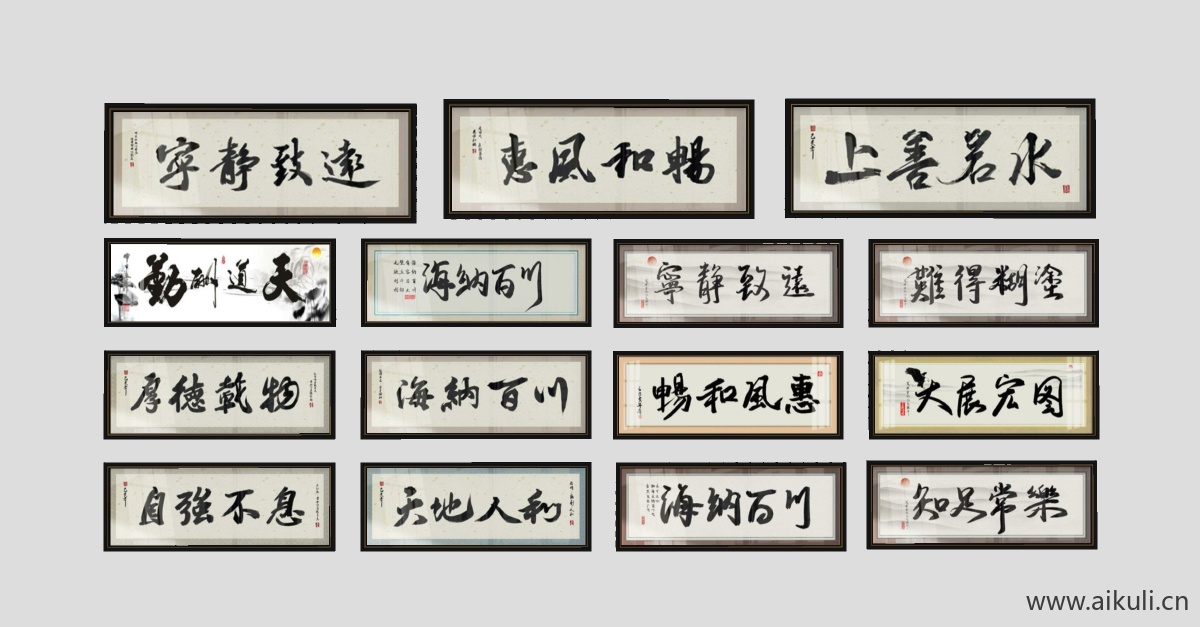 寧靜致遠
惠風和暢
上善若水
勤酬道天
海纳百川
寧靜致遠
難得糊塗
厚德載物
海納百川
暢和風惠
大展宏图
自強不息
天地人和
海納百川
知足常樂
www.aikuli.cn